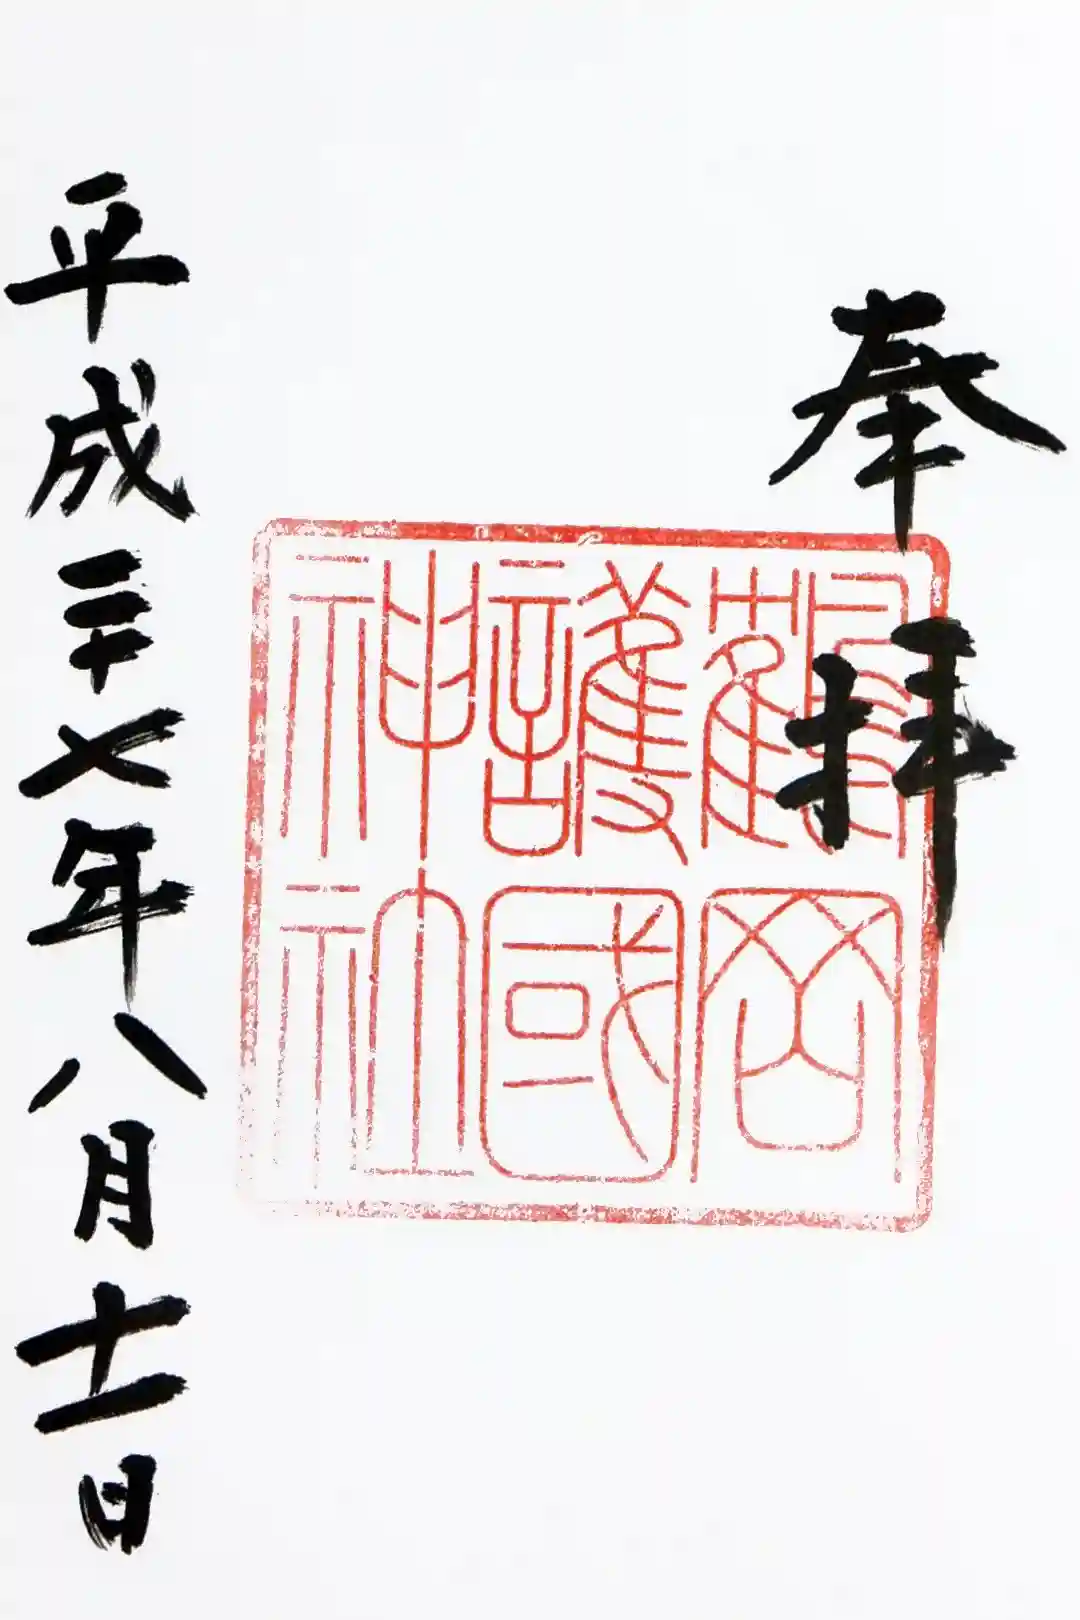 奉拝
鶴岡
護國
神社
平成二十七年八月十一日